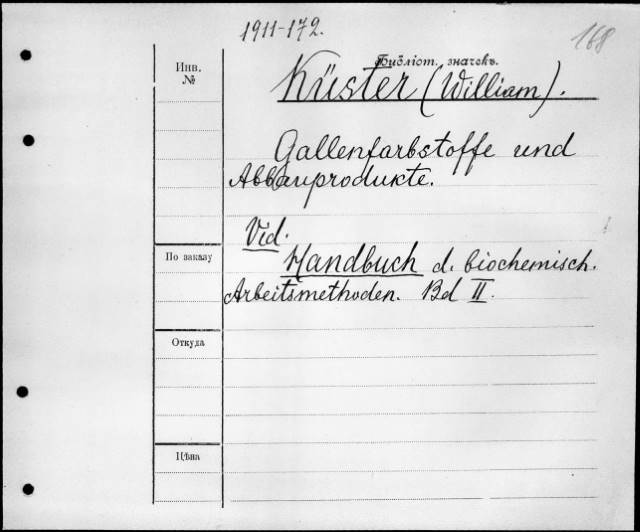 1911-172.
168
Инв.
№
Библіот. значекъ.
Küster (William).
Gallenfarbstoffe und
Abbauprodukte.
Vid.
Handbuch d. biochemisch.
По заказу
Arbeitsmethoden. Bd II.
Откуда
Цѣна